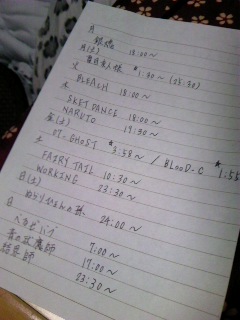 月
銀魂 18:00~
月(火)
*1:30~ (25:30)
火
BLEACH 18:00~
木
SKET DANCE 18:00~
NARUTO 19:30~
金(土)
07-GHOST *3:58~ / BLOOD-C *1:55
土
FAIRY TAIL 10:30~
WORKING 23:30~
日(土)
ぬらりひょんの孫 24:00~
日
べるぜバブ 7:00~
青の祓魔師 17:00~
結界師 23:30~